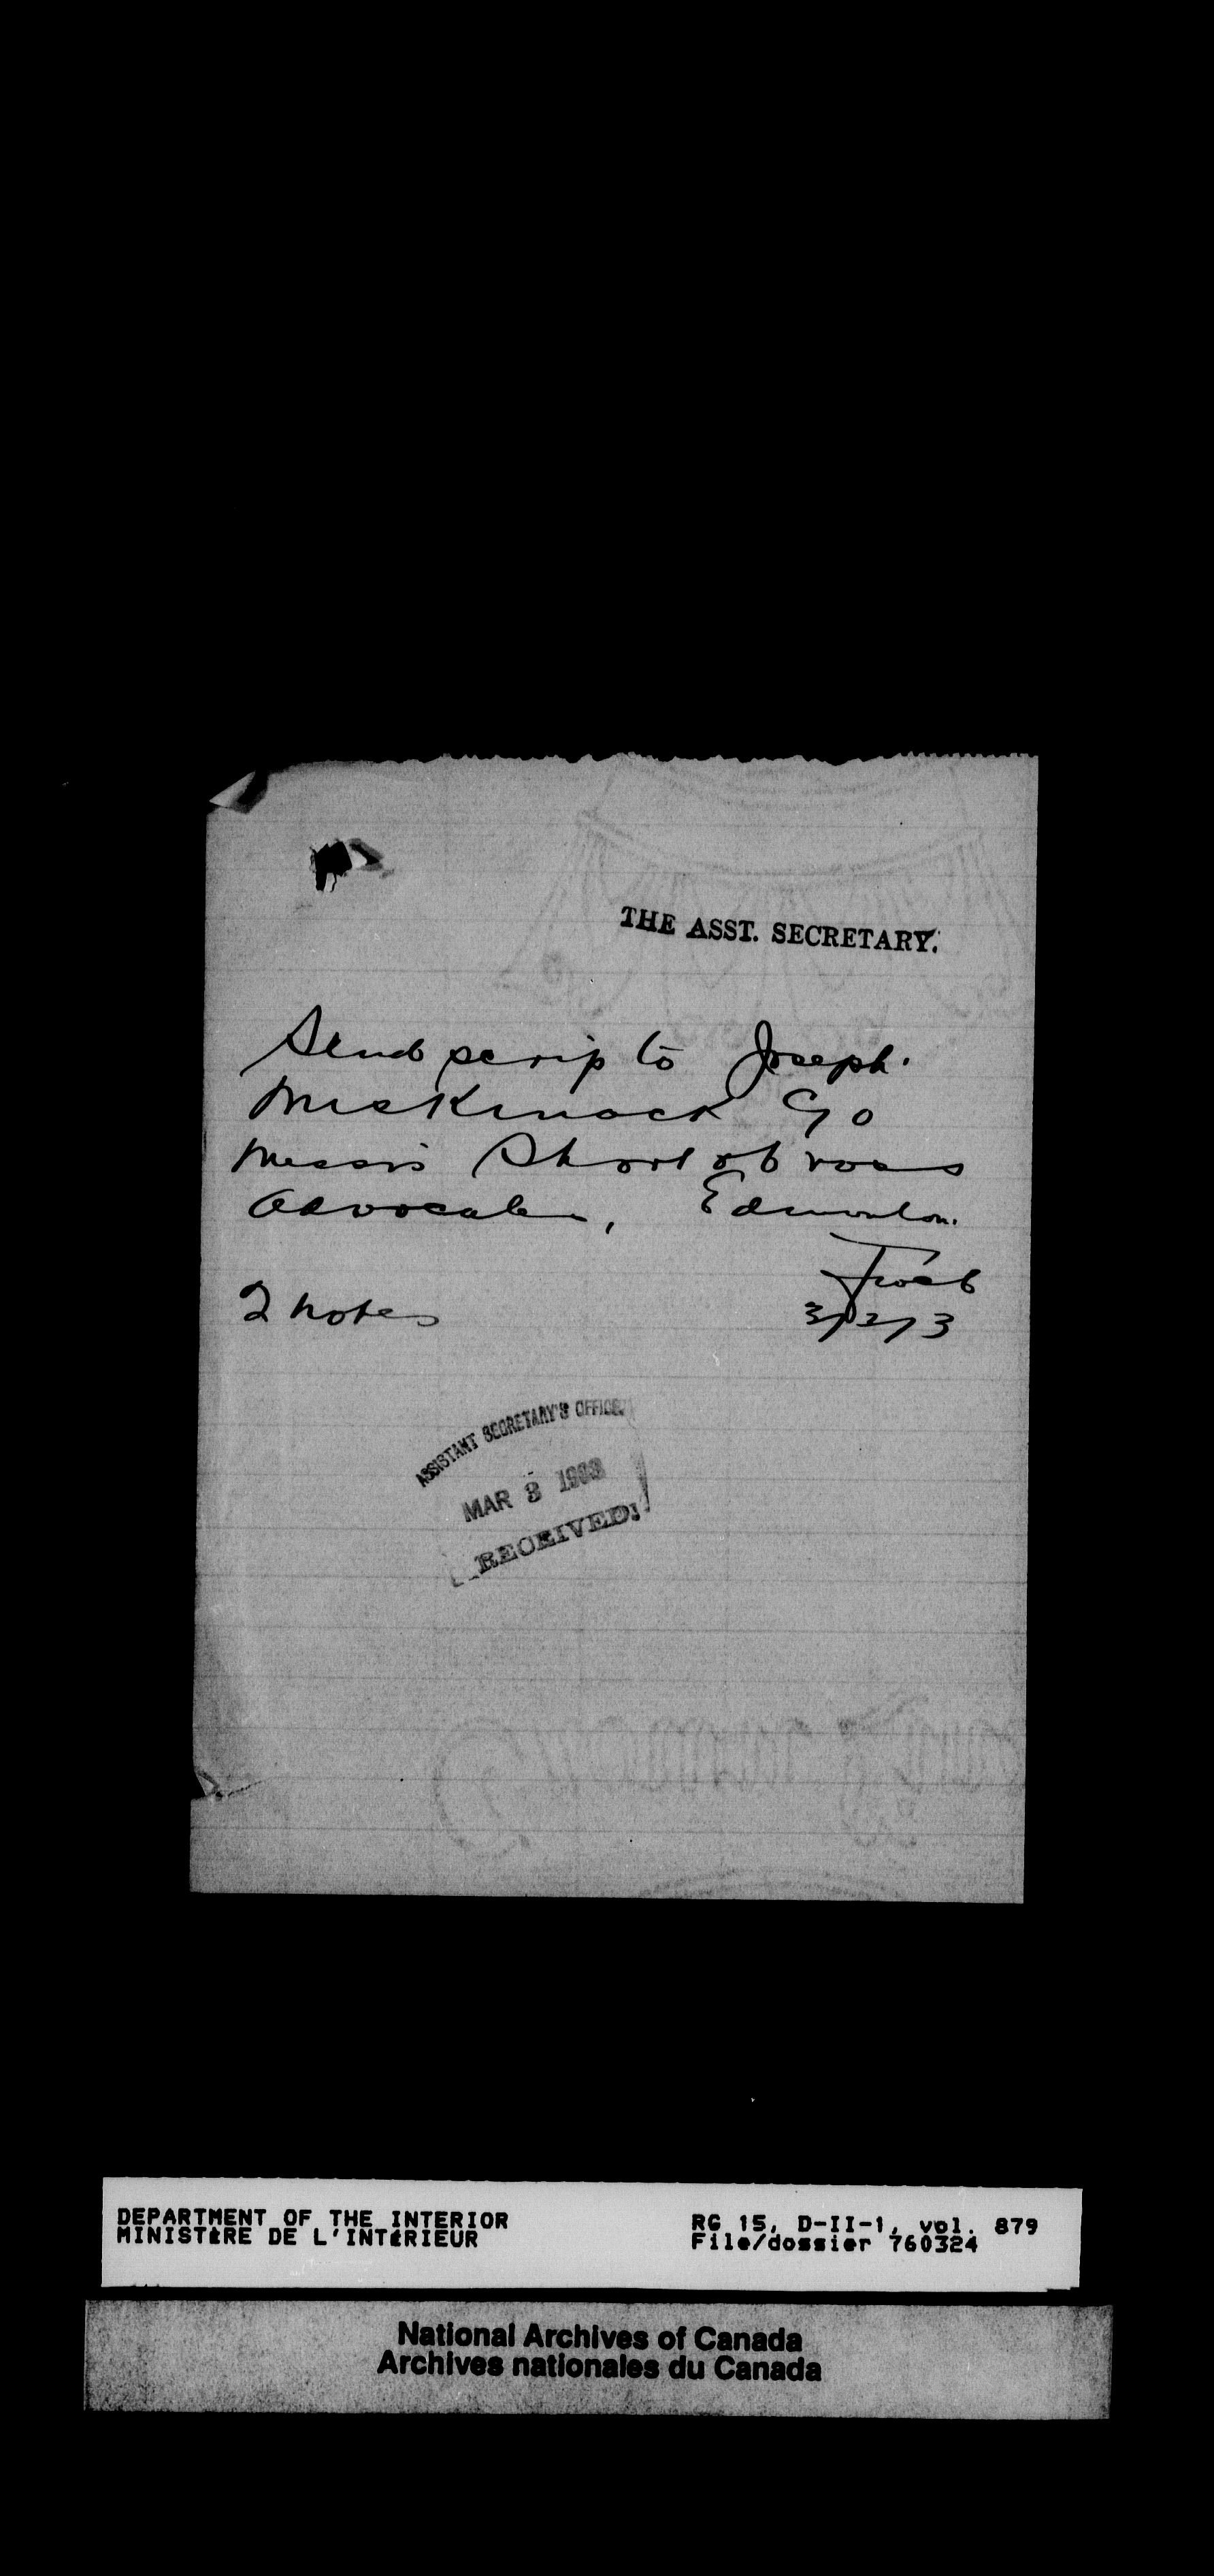 THE ASST. SECRETARY.
Send scrip to Joseph
Meskinack C/o
Messrs Short
Advocates, Edmonton.
2 notes
3/3/3
ASSISTANT SECRETARY'S OFFICE.
MAR 3 1903
RECEIVED!
DEPARTMENT OF THE INTERIOR
MINISTÈRE DE L'INTÉRIEUR
RG 15, D-II-1, vol. 879
File/dossier 760324
National Archives of Canada
Archives nationales du Canada